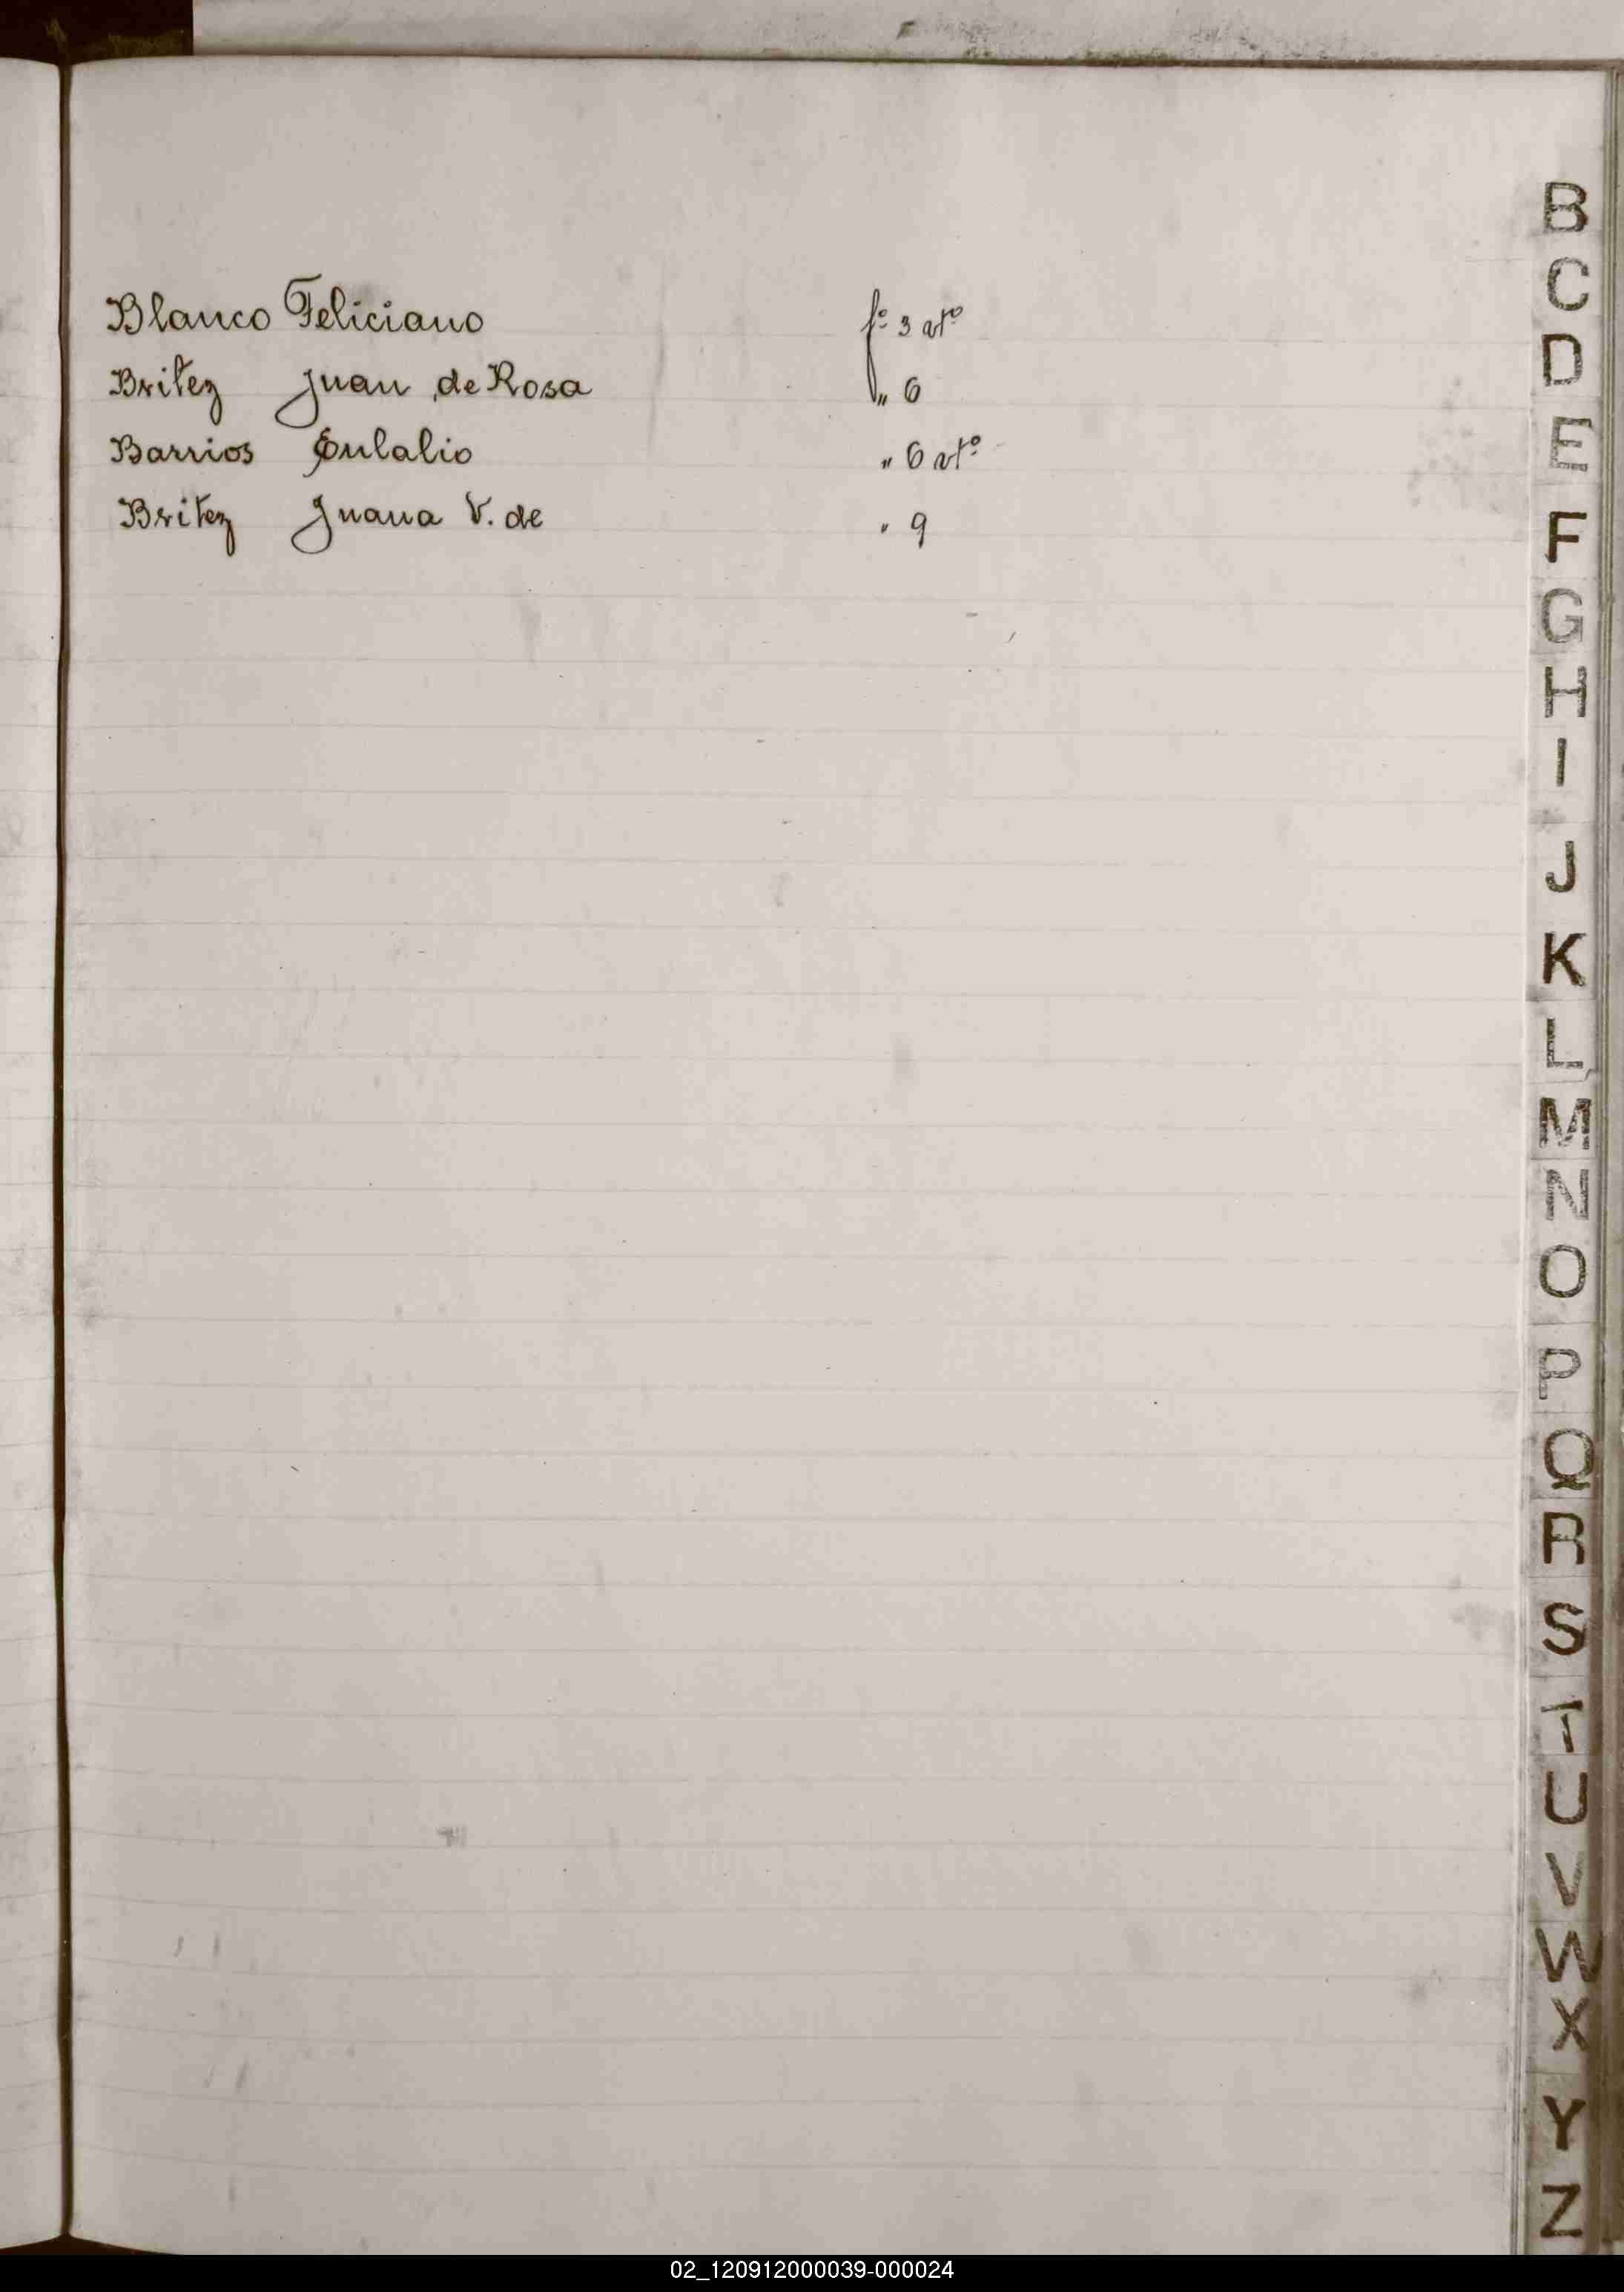 Blanco Feliciano fº 3 vtº
Britez Juan de Rosa „ 6
Barrios Eulalio „ 6 vtº
Britez Juana V. de „ 9
B
C
D
E
F
G
H
I
J
K
L
M
N
O
P
Q
R
S
T
U
V
W
X
Y
Z
02_120912000039-000024